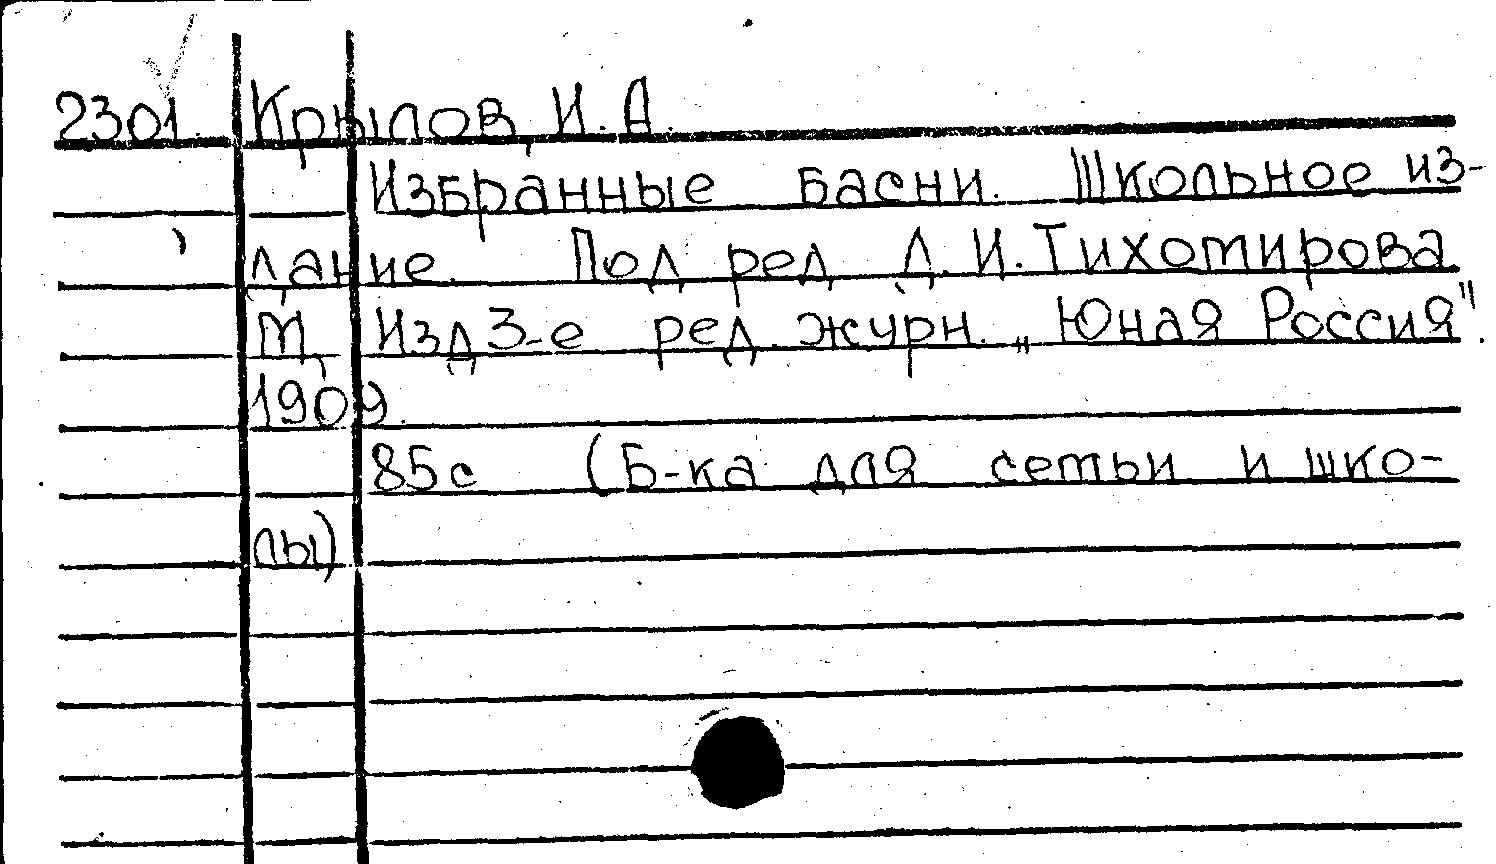 2301. Крылов, И. А.
Избранные басни. Школьное из-
дание. Под ред Д. И. Тихомирова
М, Изд 3-е ред. журн. „Юная Россия".
1909.
85с (Б-ка для сетьи и шко-
лы)